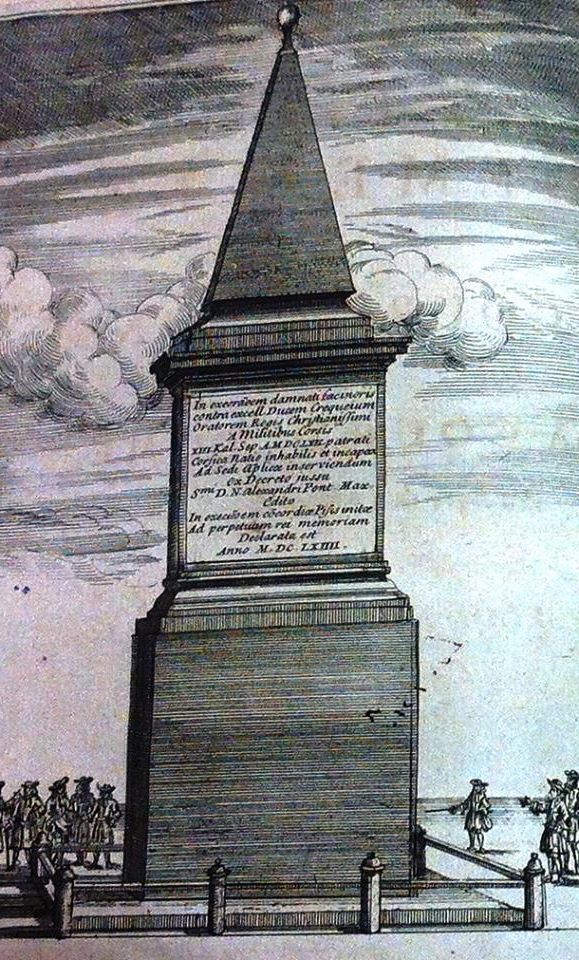 In execrãoem damnati facinoris
contra excell Ducem Crequeium
Oratorem Regis Christianissimi
A Militibus Corsis
XIII Kal. Sep. A. M.DCLXII. patrati
Corsica Natio inhabilis et incapax
Ad Sedi Aplicæ inserviendum
ex Decreto jussu
Smi D. N. Alexandri Pont. Max
Edito
In execuõem cõcordiæ Pisis initæ
Ad perpetuam rei memoriam
Declarata est
Anno M. DC. LXIIII.